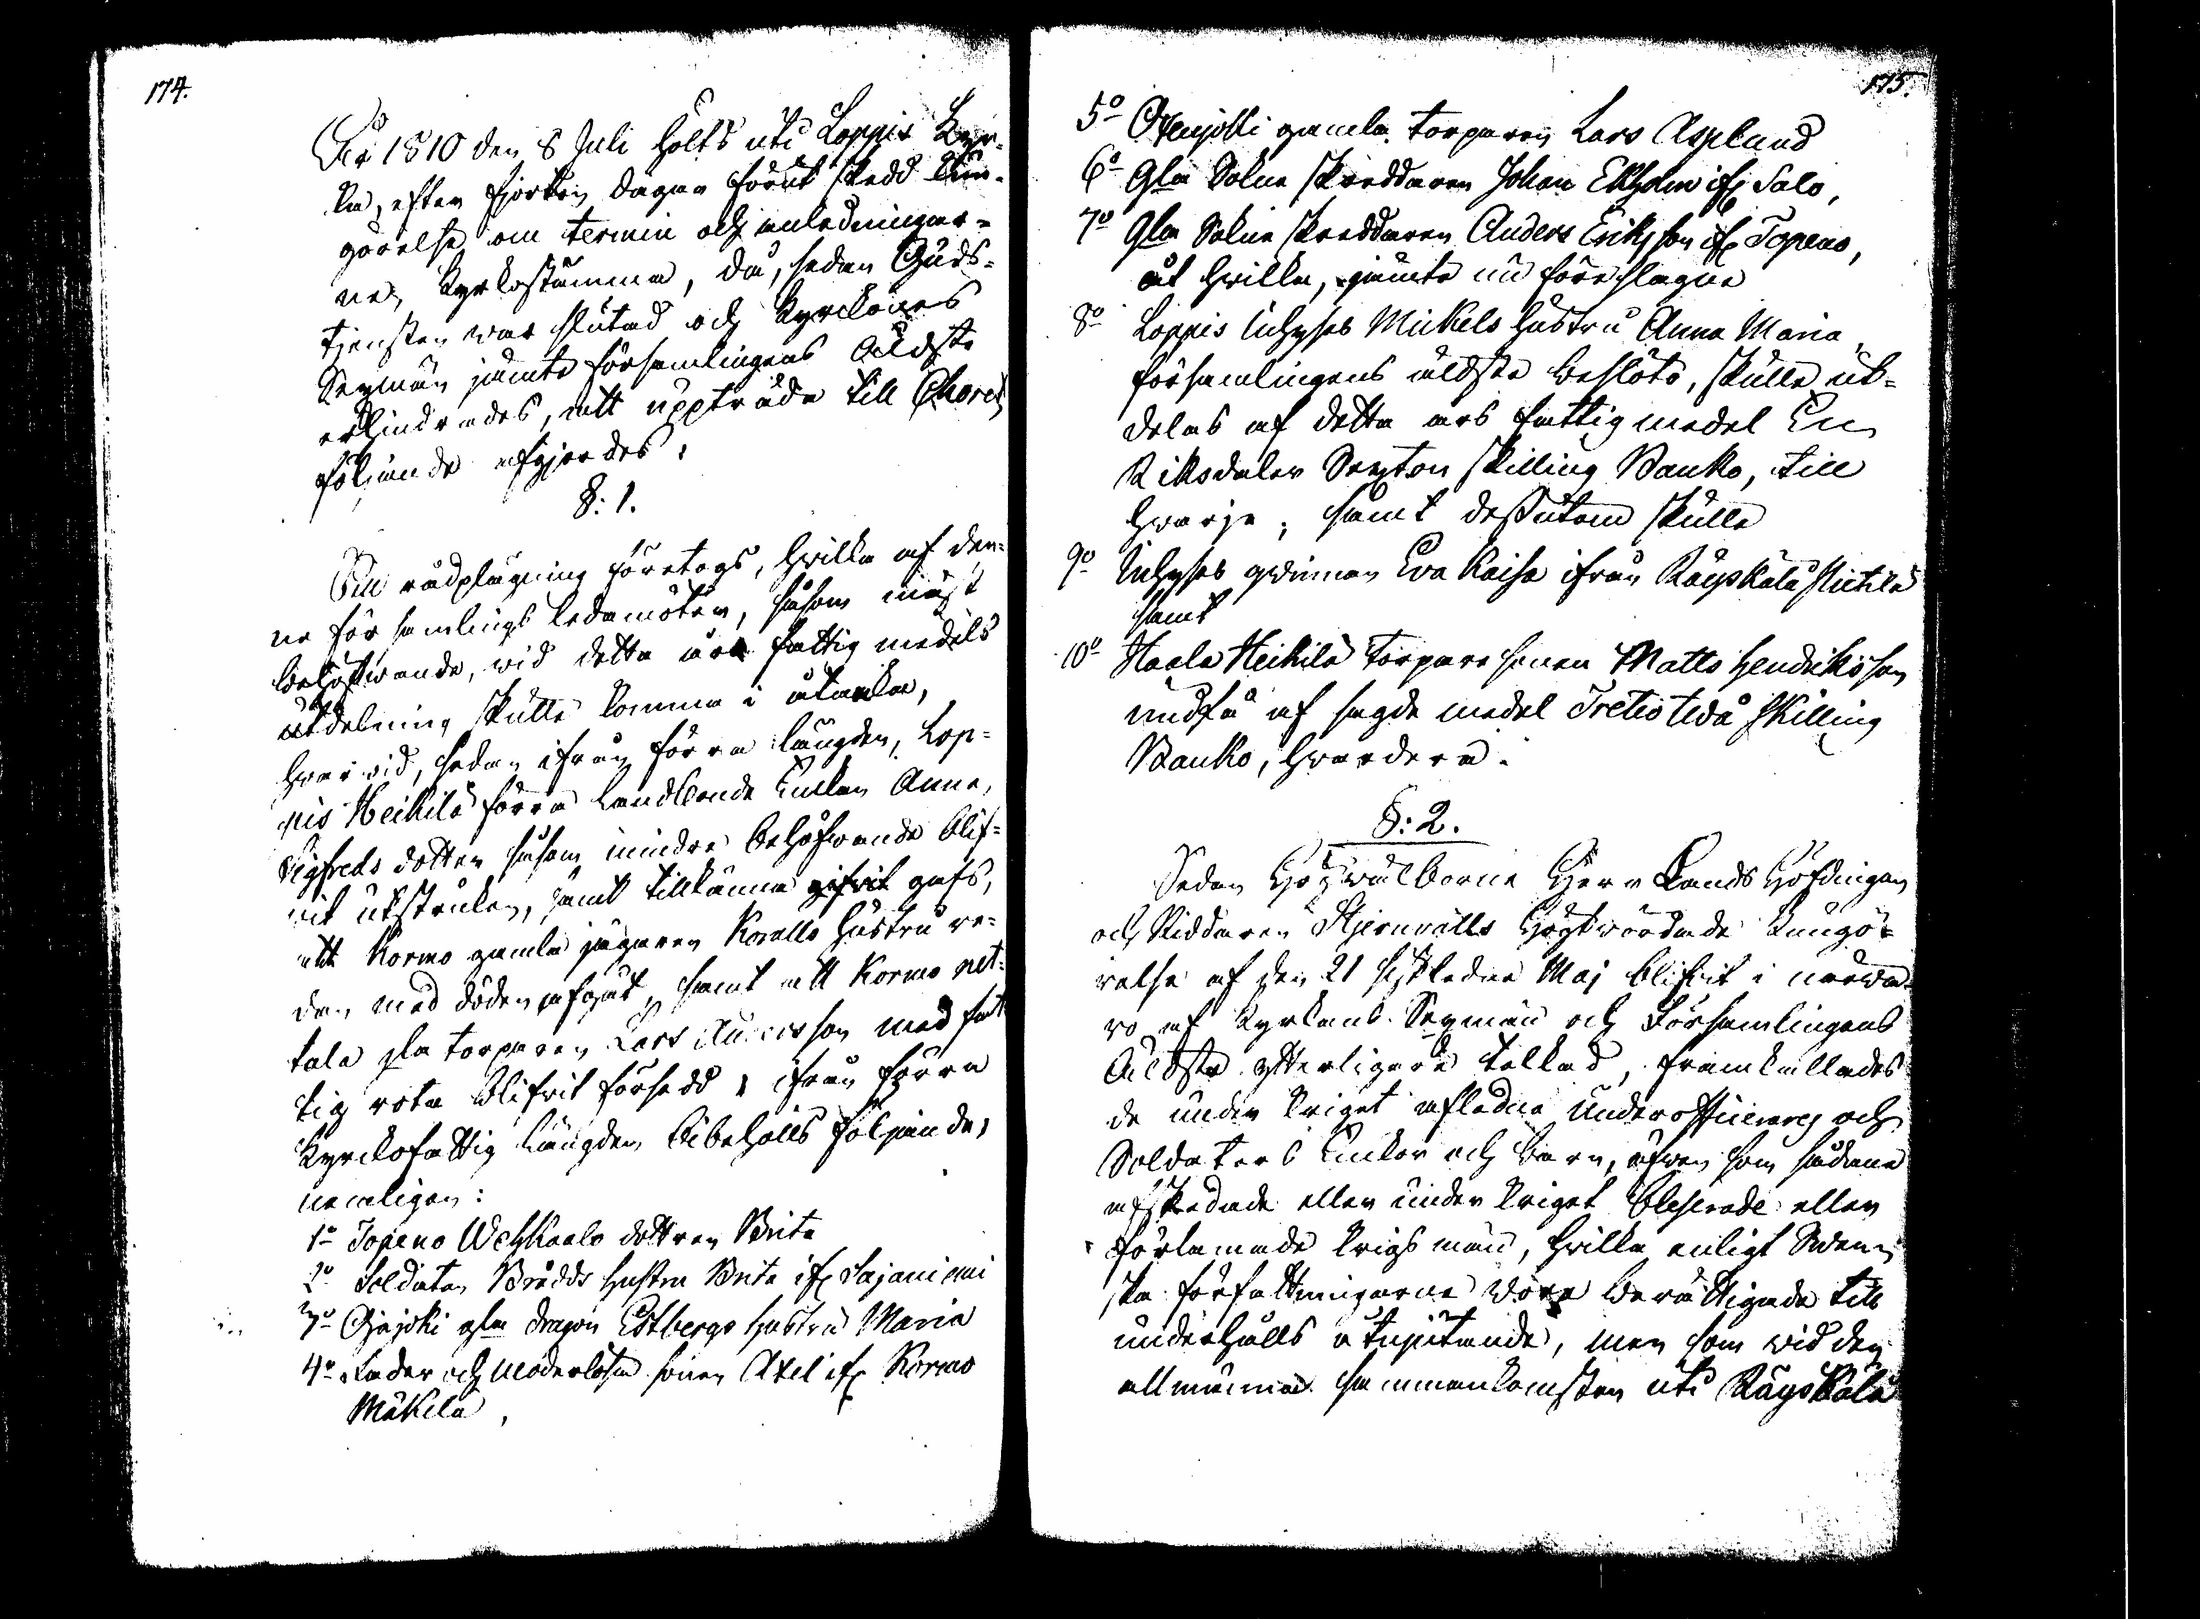 174.
År 1810 den 8 Juli holts uti Loppis Kyr-
ka, efter fjorton dagar förut skedd kun-
görelse om termin och anledningar-
ne, Kyrkostämma, då, sedan Guds-
tjensten war slutad och Kyrckones
Sexmän jämte församlingens Äldste
erhindrades, att uppträda till Choret,
följande afgjordes:
§: 1.
Till rådplägning företogs, hwilka af den-
na församlings ledamöter, såsom mäst
behöfwande, wid detta års fattig medels
utdelning skulle komma i åtanka,
hwarwid, sedan ifrån förra längden, Lop-
pis Heikilä förra Landbonde Enkan Anna
Sigfreds dotter såsom mindre behöfwande blif-
vit utstruken, samt tillkänna gifvit gafs,
att Kormo gamla jägaren Koralls hustru re-
dan med döden afgåt, samt att Kormo net-
tala gla torparen Lars Andersson med fat-
tig rota blifvit försedd, ifrån förra
Kyrckofattig längden bibehölls följande,
nemligen:
1o Topeno Wehkaalo dottren Brita
2o Soldaten Brådds hustru Brita ifr Sajaniemi
3o Ojajoki gla dragon Estbergs hustru Maria
4o Fader och Moderlösa sonen Axel ifr Kormo
Mäkilä,
175.
5o Ojenjolli gamla torparen Lars Asplund
6o Gla Sokne skreddaren Johan Ekholm ifr Salo,
7o Gla Sokne skreddaren Anders Eriksson ifr Topeno,
åt hwilka, jämte nu föreslagne
8o Loppis Inhyses Mickels hustru Anna Maria,
församlingens äldste beslöto, skulle ut-
delas af detta års fattigmedel En
Riksdaler Sexton skilling Banko, till
hwarje; samt dessutom skulle
9o Inhyses qwinnan Eva Kaisa ifrån Räyskälä
samt
10o Haala Heikilä torpare sonen Matts Hendriksson
undfå af sagde medel Tretio twå skilling
Banko, hwardera.
§: 2.
Sedan Högwälborne Herr Lands Höfdingen
och Riddaren Stjernvalls Högtwördade kungö-
relse af den 21 sistledne Maj blifvit i närwa-
ro af Kyrkans Sexmän och Församlingens
Äldste ytterligare tolkad, framkallades
de under kriget afledne Underofficerares och
Soldaters Enkor och barn, äfwen som sådane
afskedade eller under kriget blesserade eller
förlamade krigsmän, hwilka enligt Swen-
ska författningarne wore berättigade till
underhålls åtnjutande, men som wid den
allmänna sammankomsten uti Räyskälä